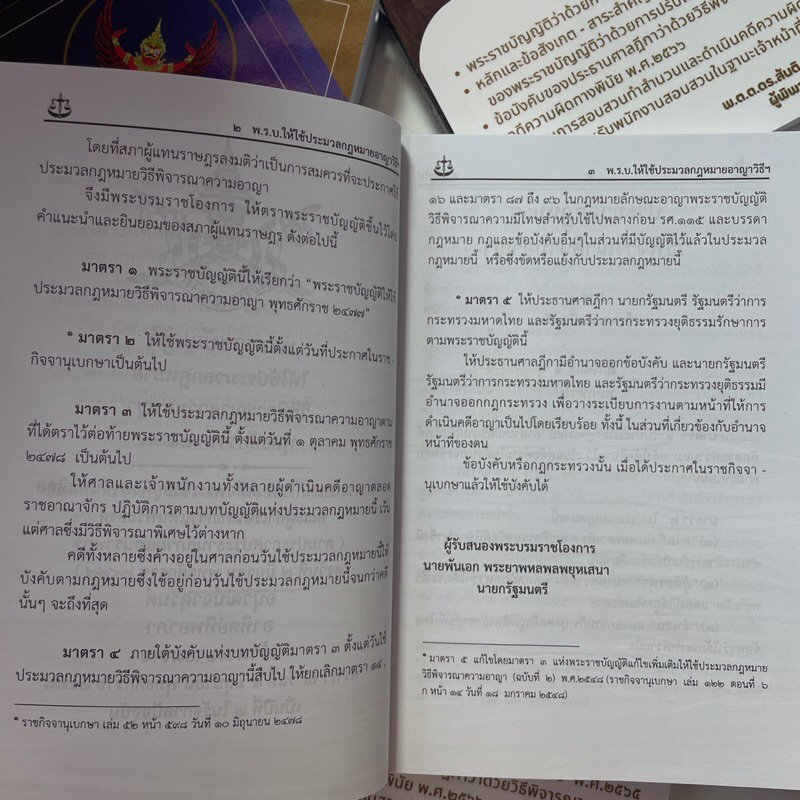 • พระราชบัญญัติว่าด้วยก
• หลักและข้อสังเกต - สาระสำคั
ของพระราชบัญญัติว่าด้วยการปรับ
• ข้อบังคับของประธานศาลฎีกาว่าด้วยวิธีพิ
คดีความผิดทางพินัย พ.ศ.๒๕๖๖
การสอบสวนทำสำนวนและดำเนินคดีความผิ
รับพนักงานสอบสวนในฐานะเจ้าหน้าที่
พ.ต.ต.ดร.สันติ
ผู้พิพ
๒ พ.ร.บ.ให้ใช้ประมวลกฎหมายอาญาวิธีฯ
โดยที่สภาผู้แทนราษฎรลงมติว่าเป็นการสมควรที่จะประกาศใช้
ประมวลกฎหมายวิธีพิจารณาความอาญา
จึงมีพระบรมราชโองการ ให้ตราพระราชบัญญัติขึ้นไว้โดย
คำแนะนำและยินยอมของสภาผู้แทนราษฎร ดังต่อไปนี้
มาตรา ๑ พระราชบัญญัตินี้ให้เรียกว่า “พระราชบัญญัติให้ใช้
ประมวลกฎหมายวิธีพิจารณาความอาญา พุทธศักราช ๒๔๗๗”
* มาตรา ๒ ให้ใช้พระราชบัญญัตินี้ตั้งแต่วันที่ประกาศในราช -
กิจจานุเบกษาเป็นต้นไป
มาตรา ๓ ให้ใช้ประมวลกฎหมายวิธีพิจารณาความอาญาตาม
ที่ได้ตราไว้ต่อท้ายพระราชบัญญัตินี้ ตั้งแต่วันที่ ๑ ตุลาคม พุทธศักราช
๒๔๗๘ เป็นต้นไป
ให้ศาลและเจ้าพนักงานทั้งหลายผู้ดำเนินคดีอาญาตลอด
ราชอาณาจักร ปฏิบัติการตามบทบัญญัติแห่งประมวลกฎหมายนี้ เว้น
แต่ศาลซึ่งมีวิธีพิจารณาพิเศษไว้ต่างหาก
คดีทั้งหลายซึ่งค้างอยู่ในศาลก่อนวันใช้ประมวลกฎหมายนี้ให้
บังคับตามกฎหมายซึ่งใช้อยู่ก่อนวันใช้ประมวลกฎหมายนี้จนกว่าคดี
นั้นๆ จะถึงที่สุด
มาตรา ๔ ภายใต้บังคับแห่งบทบัญญัติมาตรา ๓ ตั้งแต่วันใช้
ประมวลกฎหมายวิธีพิจารณาความอาญานี้สืบไป ให้ยกเลิกมาตรา ๑๔ ,
* ราชกิจจานุเบกษา เล่ม ๕๒ หน้า ๕๙๘ วันที่ ๑๐ มิถุนายน ๒๔๗๘
๓ พ.ร.บ.ให้ใช้ประมวลกฎหมายอาญาวิธีฯ
๑๖ และมาตรา ๘๗ ถึง ๙๖ ในกฎหมายลักษณะอาญาพระราชบัญญัติ
วิธีพิจารณาความมีโทษสำหรับใช้ไปพลางก่อน รศ.๑๑๕ และบรรดา
กฎหมาย กฎและข้อบังคับอื่นๆในส่วนที่มีบัญญัติไว้แล้วในประมวล
กฎหมายนี้ หรือซึ่งขัดหรือแย้งกับประมวลกฎหมายนี้
* มาตรา ๕ ให้ประธานศาลฎีกา นายกรัฐมนตรี รัฐมนตรีว่าการ
กระทรวงมหาดไทย และรัฐมนตรีว่าการกระทรวงยุติธรรมรักษาการ
ตามพระราชบัญญัตินี้
ให้ประธานศาลฎีกามีอำนาจออกข้อบังคับ และนายกรัฐมนตรี
รัฐมนตรีว่าการกระทรวงมหาดไทย และรัฐมนตรีว่ากระทรวงยุติธรรมมี
อำนาจออกกฎกระทรวง เพื่อวางระเบียบการงานตามหน้าที่ให้การ
ดำเนินคดีอาญาเป็นไปโดยเรียบร้อย ทั้งนี้ ในส่วนที่เกี่ยวข้องกับอำนาจ
หน้าที่ของตน
ข้อบังคับหรือกฎกระทรวงนั้น เมื่อได้ประกาศในราชกิจจา -
นุเบกษาแล้วให้ใช้บังคับได้
ผู้รับสนองพระบรมราชโองการ
นายพันเอก พระยาพหลพลพยุหเสนา
นายกรัฐมนตรี
* มาตรา ๕ แก้ไขโดยมาตรา ๓ แห่งพระราชบัญญัติแก้ไขเพิ่มเติมให้ใช้ประมวลกฎหมาย
วิธีพิจารณาความอาญา (ฉบับที่ ๒) พ.ศ.๒๕๔๘ (ราชกิจจานุเบกษา เล่ม ๑๒๒ ตอนที่ ๖
ก หน้า ๑๔ วันที่ ๑๘ มกราคม ๒๕๔๘)
พินัย พ.ศ.๒๕๖๕